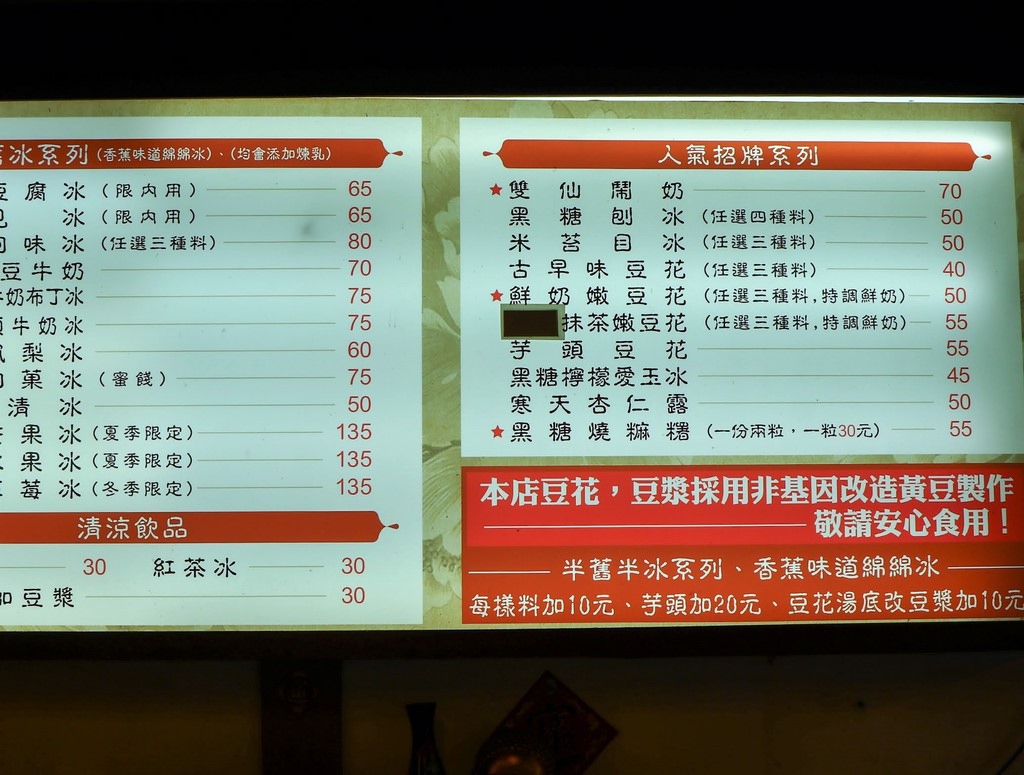 冰系列(香蕉味道綿綿冰)、(均會添加煉乳)
豆腐冰(限內用) 65
冰(限內用) 65
味冰(任選三種料) 80
豆牛奶 70
牛奶布丁冰 75
牛奶冰 75
梨冰 60
菓冰(蜜餞) 75
清冰 50
芒果冰(夏季限定) 135
水果冰(夏季限定) 135
草莓冰(冬季限定) 135
清涼飲品
30 紅茶冰 30
加豆漿 30
人氣招牌系列
★雙仙鬧奶 70
黑糖刨冰(任選四種料) 50
米苔目冰(任選三種料) 50
古早味豆花(任選三種料) 40
★鮮奶嫩豆花(任選三種料,特調鮮奶) 50
抹茶嫩豆花(任選三種料,特調鮮奶) 55
芋頭豆花 55
黑糖檸檬愛玉冰 45
寒天杏仁露 50
★黑糖燒麻糬(一份兩粒,一粒30元) 55
本店豆花,豆漿採用非基因改造黃豆製作
敬請安心食用!
半舊半冰系列、香蕉味道綿綿冰
每樣料加10元、芋頭加20元、豆花湯底改豆漿加10元